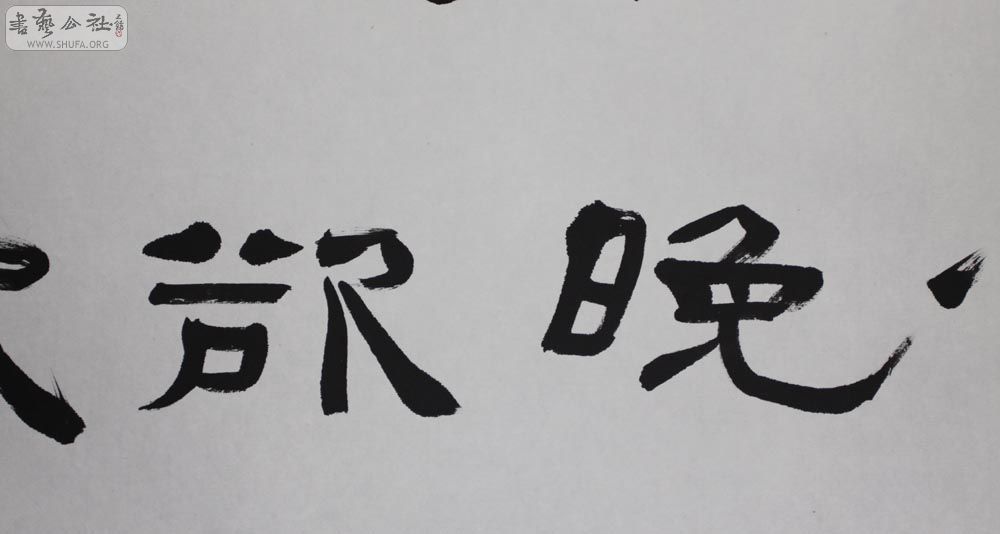 書藝公社
WWW.SHUFA.ORG
晚
欲